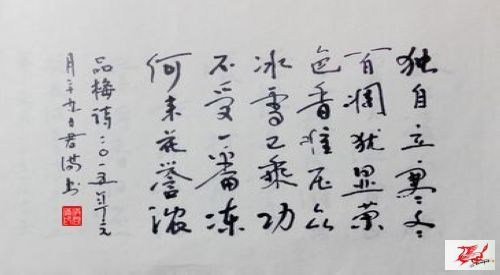 独自立寒冬
百凋犹显荣
色香压众
冰雪已乘功
不受一番冻
何来花誉浓
品梅诗二〇一五年元
月二十九日君书